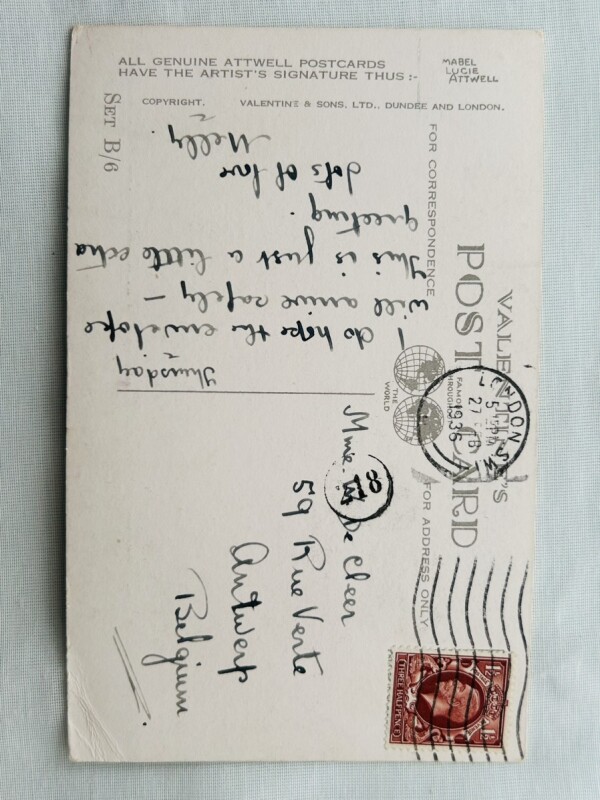 VALENTINE'S
POST CARD
FAMOUS THROUGHOUT
THE WORLD
FOR CORRESPONDENCE
FOR ADDRESS ONLY
ALL GENUINE ATTWELL POSTCARDS
HAVE THE ARTIST'S SIGNATURE THUS :-
MABEL
LUCIE
ATTWELL
COPYRIGHT. VALENTINE & SONS, LTD., DUNDEE AND LONDON.
SET B/6
Thursday
- do hope the envelope
will arrive safely -
This is just a little extra
greeting.
Lots of love
Nelly.
Mme. De Cleer
59 Rue Verte
Antwerp
Belgium
LONDON S.W.1
27
1936
1½ 1½
THREE HALFPENCE